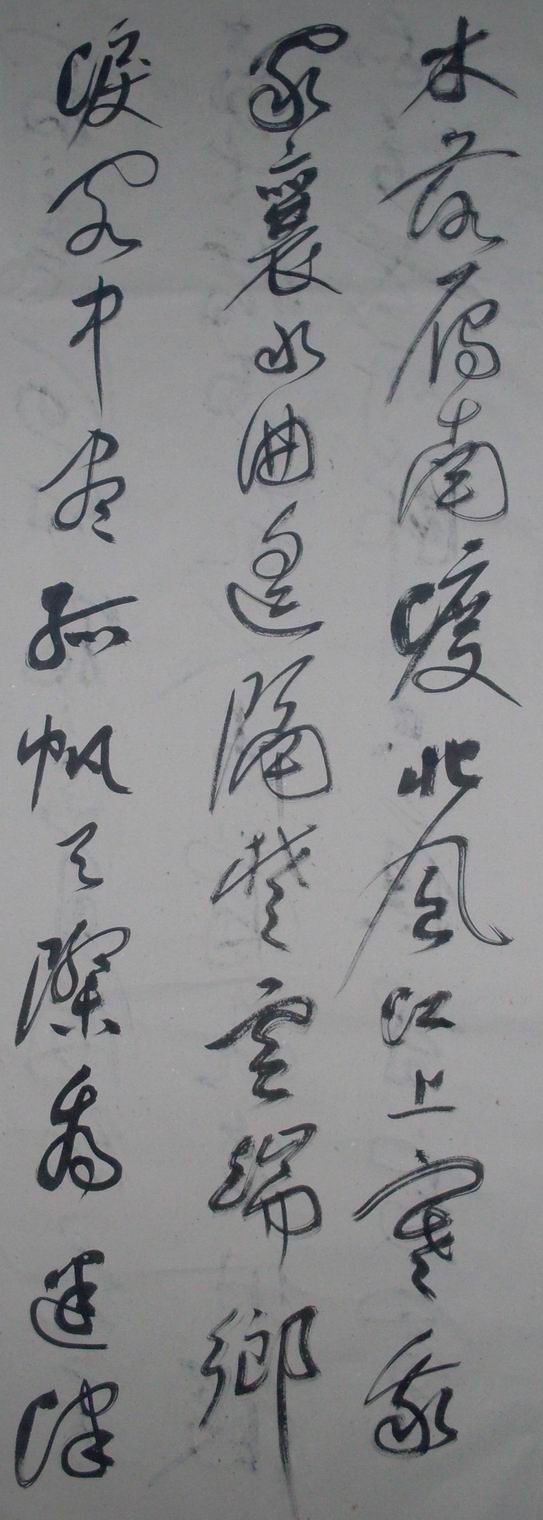 木落雁南渡北風江上寒我
家襄水曲遙隔楚雲端鄉
淚客中盡孤帆天際看迷津